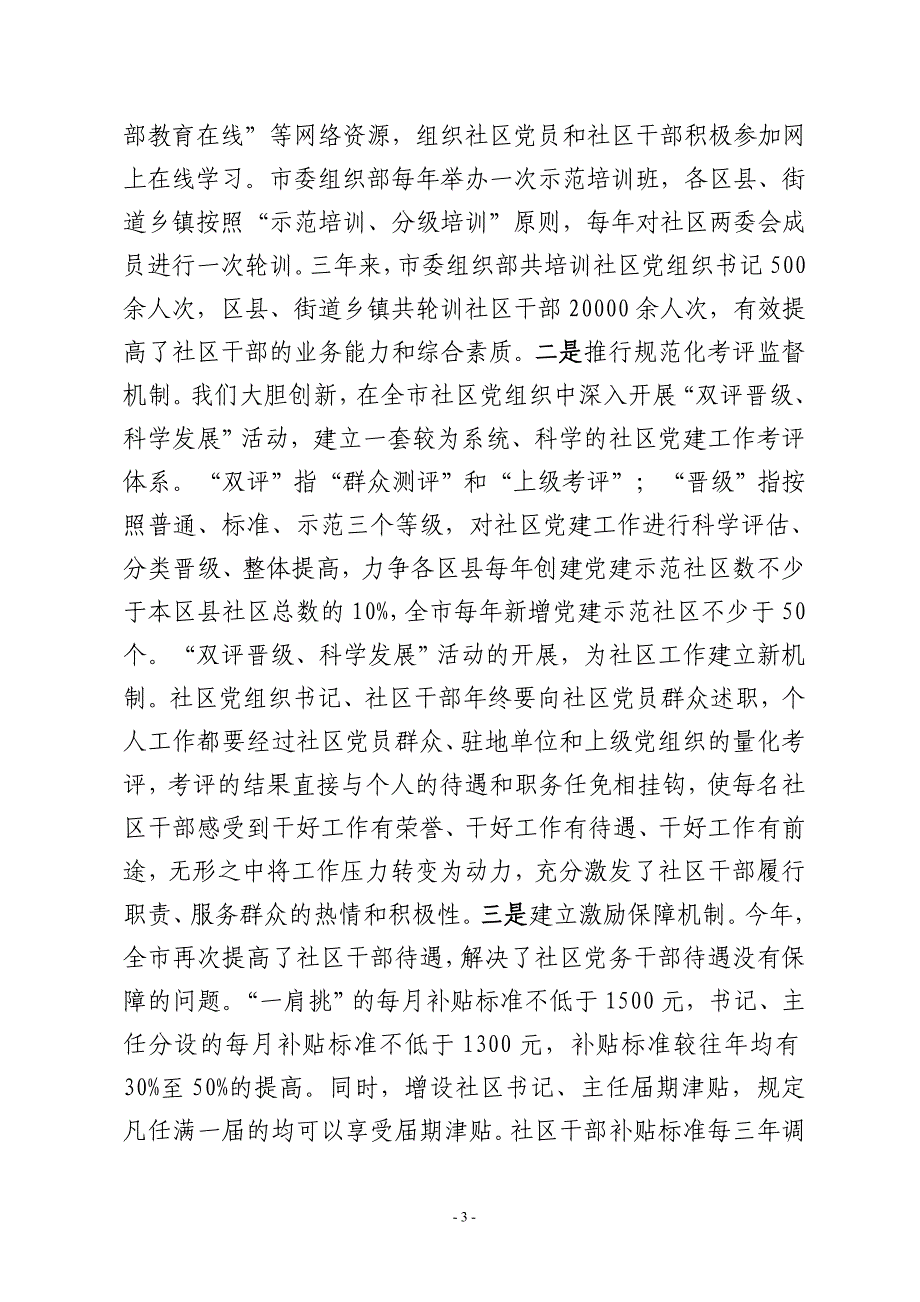 部教育在线”等网络资源，组织社区党员和社区干部积极参加网
上在线学习。市委组织部每年举办一次示范培训班，各区县、街
道乡镇按照“示范培训、分级培训”原则，每年对社区两委会成
员进行一次轮训。三年来，市委组织部共培训社区党组织书记500
余人次，区县、街道乡镇共轮训社区干部20000余人次，有效提
高了社区干部的业务能力和综合素质。二是推行规范化考评监督
机制。我们大胆创新，在全市社区党组织中深入开展“双评晋级、
科学发展”活动，建立一套较为系统、科学的社区党建工作考评
体系。“双评”指“群众测评”和“上级考评”；“晋级”指按
照普通、标准、示范三个等级，对社区党建工作进行科学评估、
分类晋级、整体提高，力争各区县每年创建党建示范社区数不少
于本区县社区总数的10%,全市每年新增党建示范社区不少于50
个。“双评晋级、科学发展”活动的开展，为社区工作建立新机
制。社区党组织书记、社区干部年终要向社区党员群众述职，个
人工作都要经过社区党员群众、驻地单位和上级党组织的量化考
评，考评的结果直接与个人的待遇和职务任免相挂钩，使每名社
区干部感受到干好工作有荣誉、干好工作有待遇、干好工作有前
途，无形之中将工作压力转变为动力，充分激发了社区干部履行
职责、服务群众的热情和积极性。三是建立激励保障机制。今年，
全市再次提高了社区干部待遇，解决了社区党务干部待遇没有保
障的问题。“一肩挑”的每月补贴标准不低于1500元，书记、主
任分设的每月补贴标准不低于1300元，补贴标准较往年均有
30%至50%的提高。同时，增设社区书记、主任届期津贴，规定
凡任满一届的均可以享受届期津贴。社区干部补贴标准每三年调
- 3 -